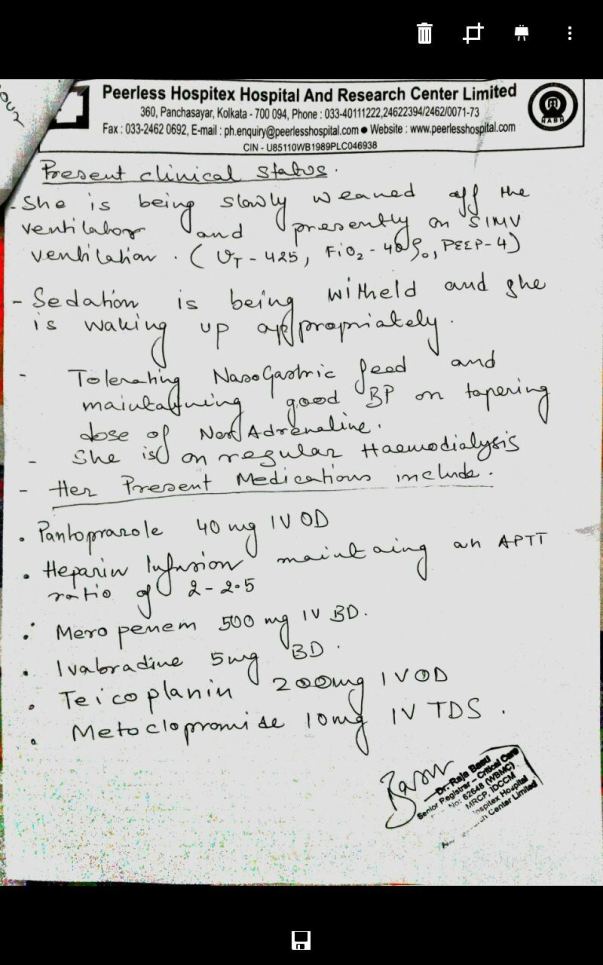 Peerless Hospitex Hospital And Research Center Limited
360, Panchasayar, Kolkata - 700 094, Phone : 033-40111222,24622394/2462/0071-73
Fax : 033-2462 0692, E-mail : ph.enquiry@peerlesshospital.com ● Website : www.peerlesshospital.com
CIN - U85110WB1989PLC046938
NABH
Present clinical status.
- She is being slowly weaned off the
ventilator and presently on SIMV
ventilation. (VT - 425, FiO2 - 40%, PEEP-4)
- Sedation is being witheld and she
is waking up appropriately.
- Tolerating NasoGastric feed and
maintaining good BP on tapering
dose of NorAdrenaline.
- She is on regular Haemodialysis
- Her Present Medications include.
. Pantoprazole 40 mg IV OD
. Heparin Infusion maintaing an APTT
ratio of 2-2.5
. Meropenem 500 mg IV BD.
. Ivabradine 5mg BD.
. Teicoplanin 200mg IV OD
. Metoclopromise 10mg IV TDS.
Basu
Dr. Raja Basu
Senior Registrar - Critical Care
No: 62648 (WBMC)
MRCP, IDCCM
Hospital
Center Limited